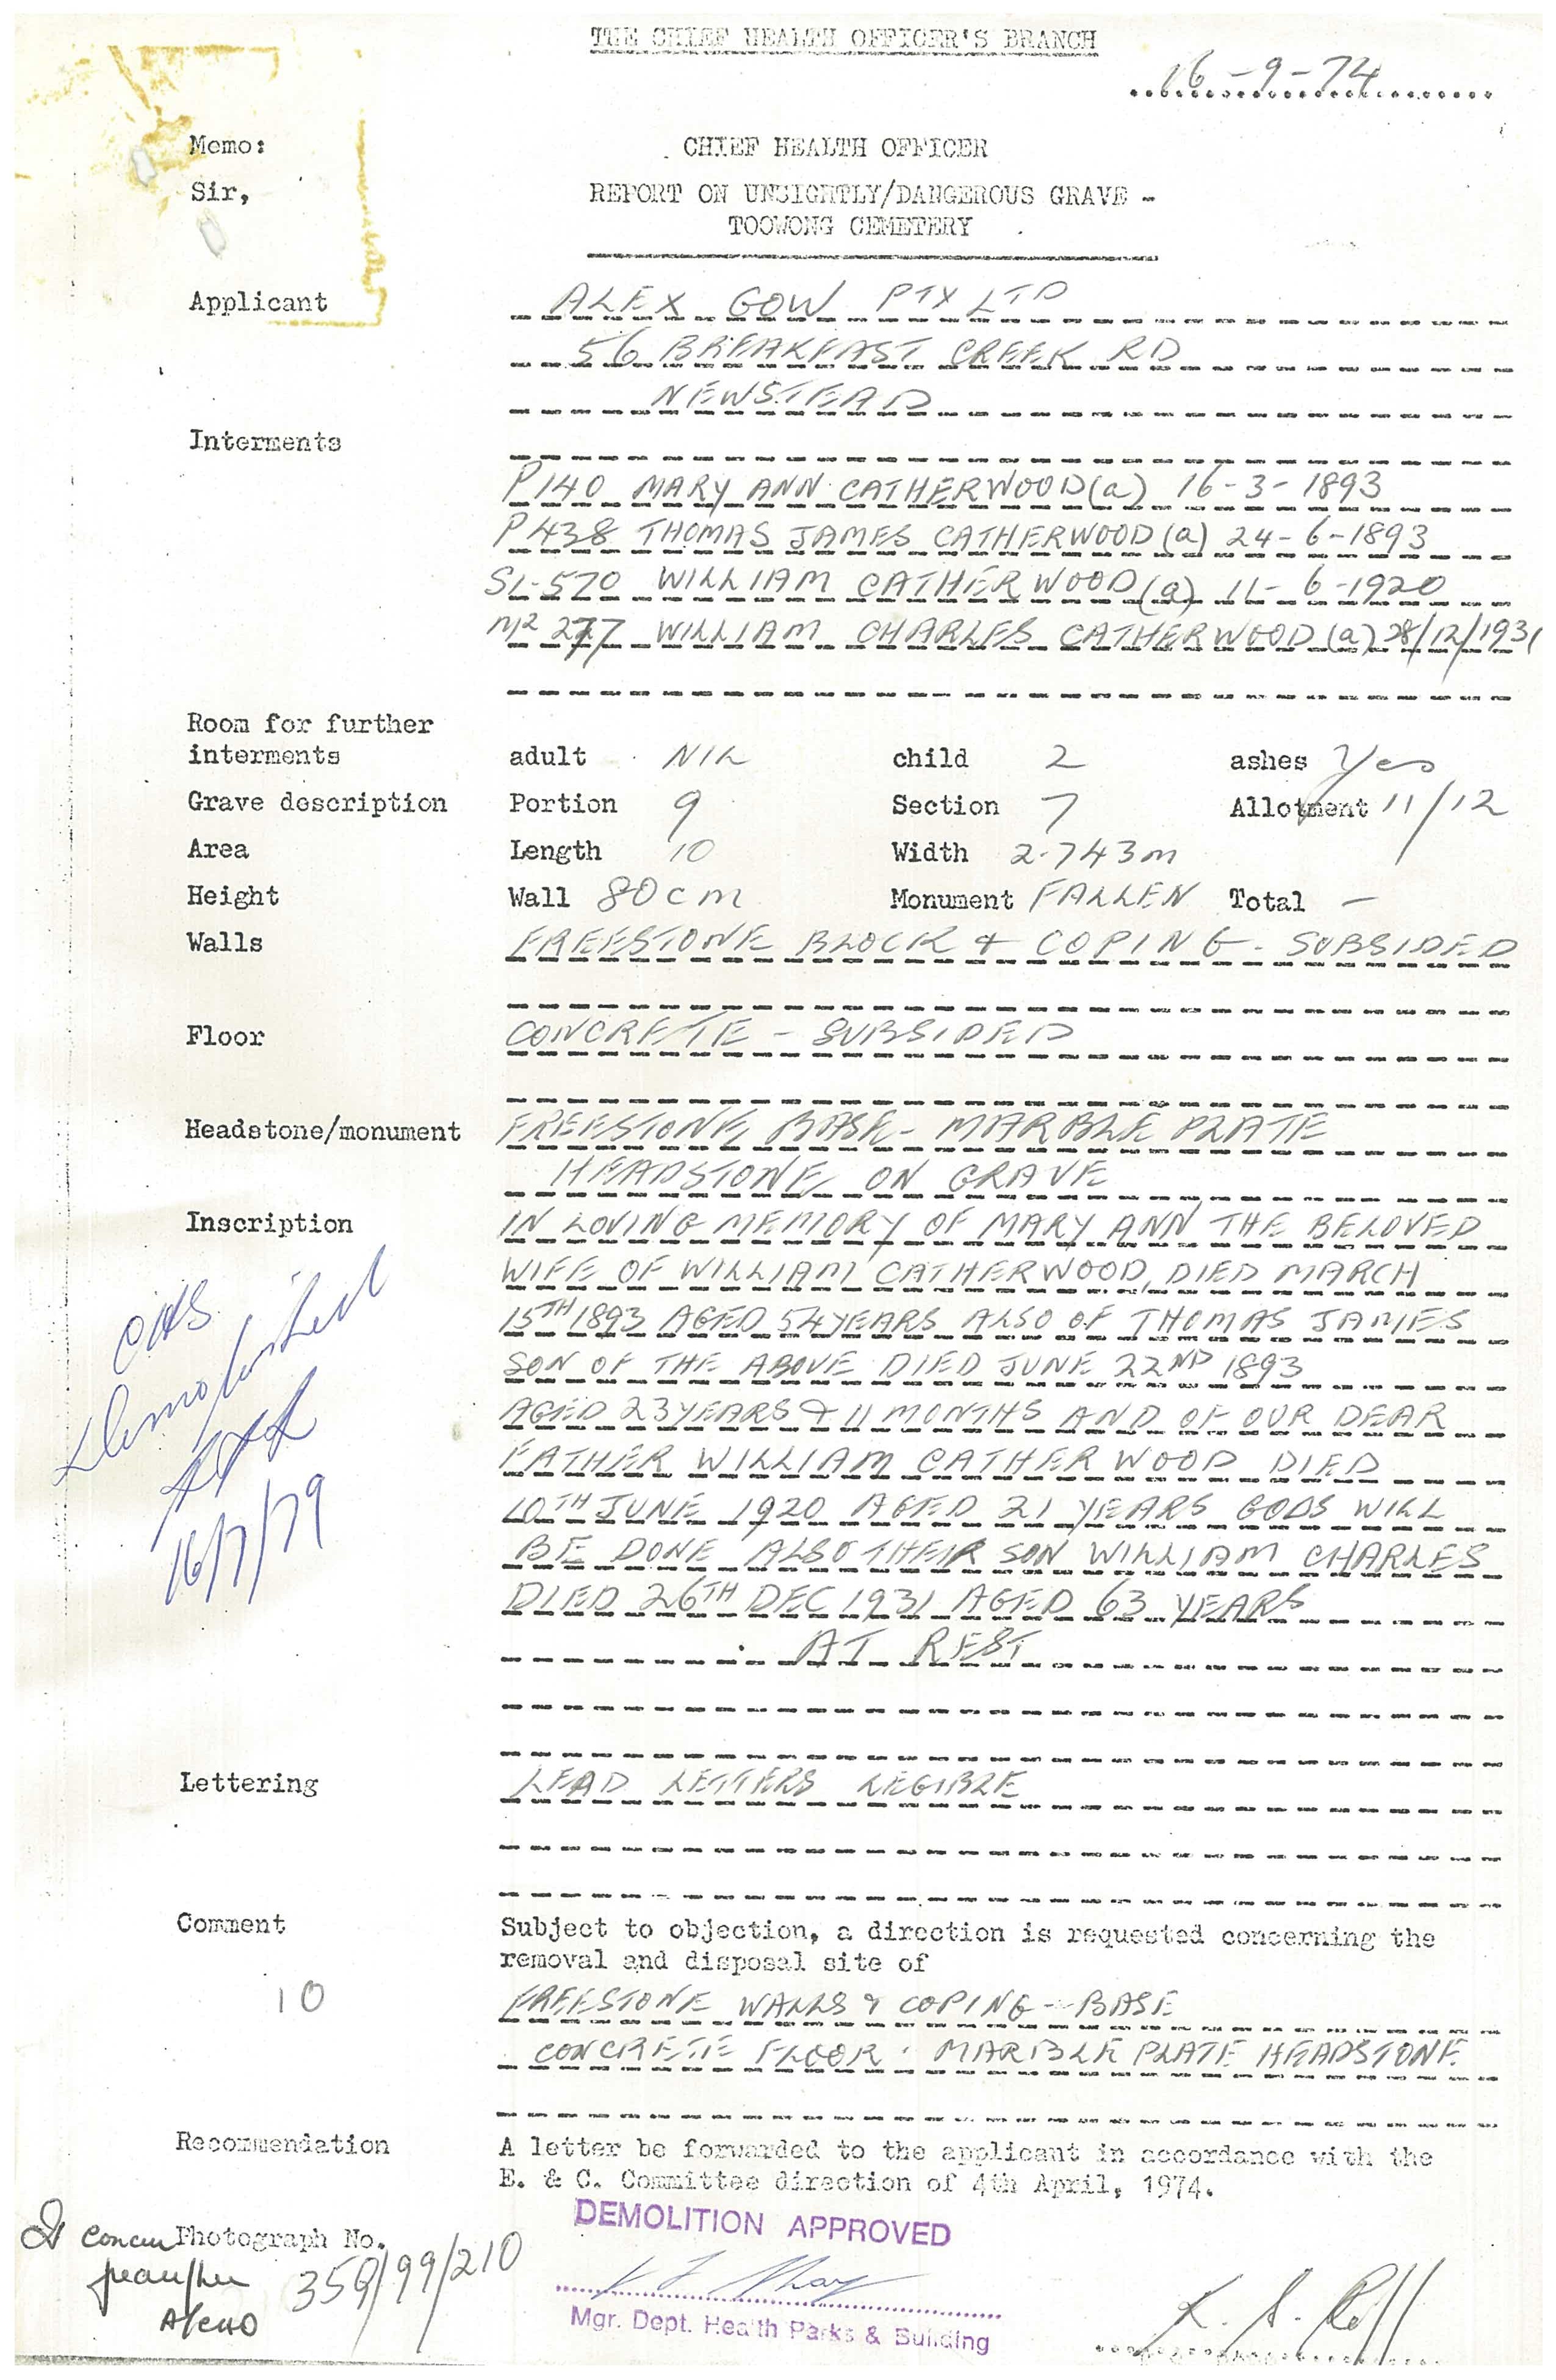 THE CHIEF HEALTH OFFICER'S BRANCH
16-9-74
Memo:
CHIEF HEALTH OFFICER
Sir,
REPORT ON UNSIGHTLY/DANGEROUS GRAVE -
TOOWONG CEMETERY
Applicant ALEX GOW PTY LTD
56 BREAKFAST CREEK RD
NEWSTEAD
Interments
P140 MARY ANN CATHERWOOD (a) 16-3-1893
P438 THOMAS JAMES CATHERWOOD (a) 24-6-1893
S1-570 WILLIAM CATHERWOOD (a) 11-6-1920
277 WILLIAM CHARLES CATHERWOOD (a) 28/12/1931
Room for further
interments adult NIL child 2 ashes Yes
Grave description Portion 9 Section 7 Allotment 11/12
Area Length 10 Width 2.743m
Height Wall 80cm Monument FALLEN Total -
Walls FREESTONE BLOCK & COPING - SUBSIDED
Floor CONCRETE - SUBSIDED
Headstone/monument FREESTONE BASE - MARBLE PLATE
HEADSTONE ON GRAVE
Inscription IN LOVING MEMORY OF MARY ANN THE BELOVED
WIFE OF WILLIAM CATHERWOOD DIED MARCH
15TH 1893 AGED 54 YEARS ALSO OF THOMAS JAMES
SON OF THE ABOVE DIED JUNE 22ND 1893
AGED 23 YEARS & 11 MONTHS AND OF OUR DEAR
FATHER WILLIAM CATHERWOOD DIED
10TH JUNE 1920 AGED 21 YEARS GODS WILL
BE DONE ALSO THEIR SON WILLIAM CHARLES
DIED 26TH DEC 1931 AGED 63 YEARS
AT REST
Demolished
16/7/79
Lettering LEAD LETTERS LEGIBLE
Comment Subject to objection, a direction is requested concerning the
removal and disposal site of
10
FREESTONE WALLS & COPING - BASE
CONCRETE FLOOR. MARBLE PLATE HEADSTONE
Recommendation A letter be forwarded to the applicant in accordance with the
E. & C. Committee direction of 4th April, 1974.
DEMOLITION APPROVED
I concur Photograph No.
358/99/210
A/CHO
Mgr. Dept. Health Parks & Building